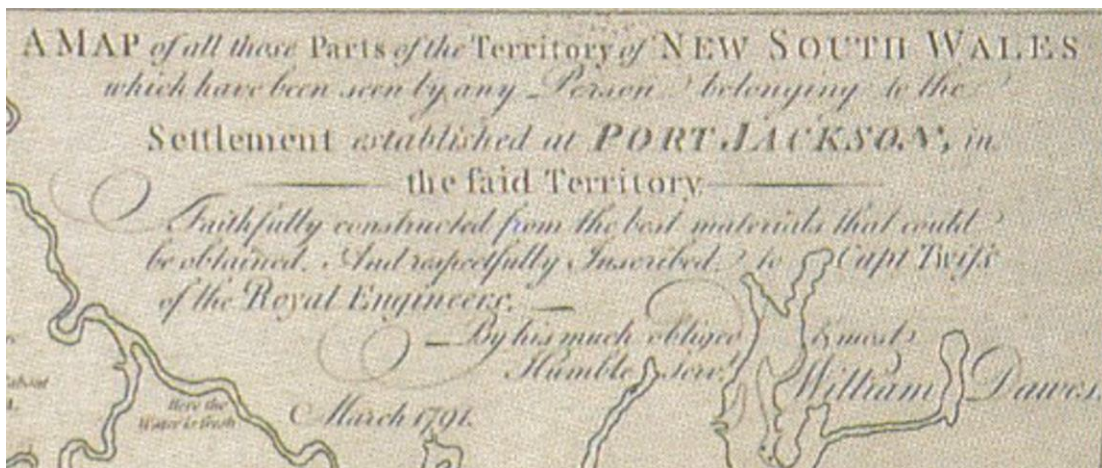 A MAP of all those Parts of the Territory of NEW SOUTH WALES
which have been seen by any Person belonging to the
Settlement established at PORT JACKSON, in
the said Territory
Faithfully constructed from the best materials that could
be obtained. And respectfully Inscribed to Capt Twiſs
of the Royal Engineers. —
— By his much obliged & most
Humble Serv.t
William Dawes.
March 1791.
Here the
Water is fresh